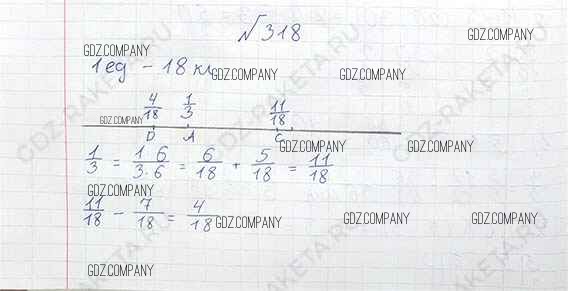 №318
GDZ.COMPANY
1ед – 18 кл
GDZ.COMPANY GDZ.COMPANY
4/18 1/3 11/18
GDZ.COMPANY
D A C
1/3 = 1 6/3·6 = 6/18 + 5/18 = 11/18
GDZ.COMPANY GDZ.COMPANY
GDZ.COMPANY
11/18 – 7/18 = 4/18
GDZ.COMPANY GDZ.COMPANY GDZ.COMPANY
GDZ.COMPANY
GDZ-RAKETA.RU
GDZ-RAKETA.RU
GDZ-RAKETA.RU